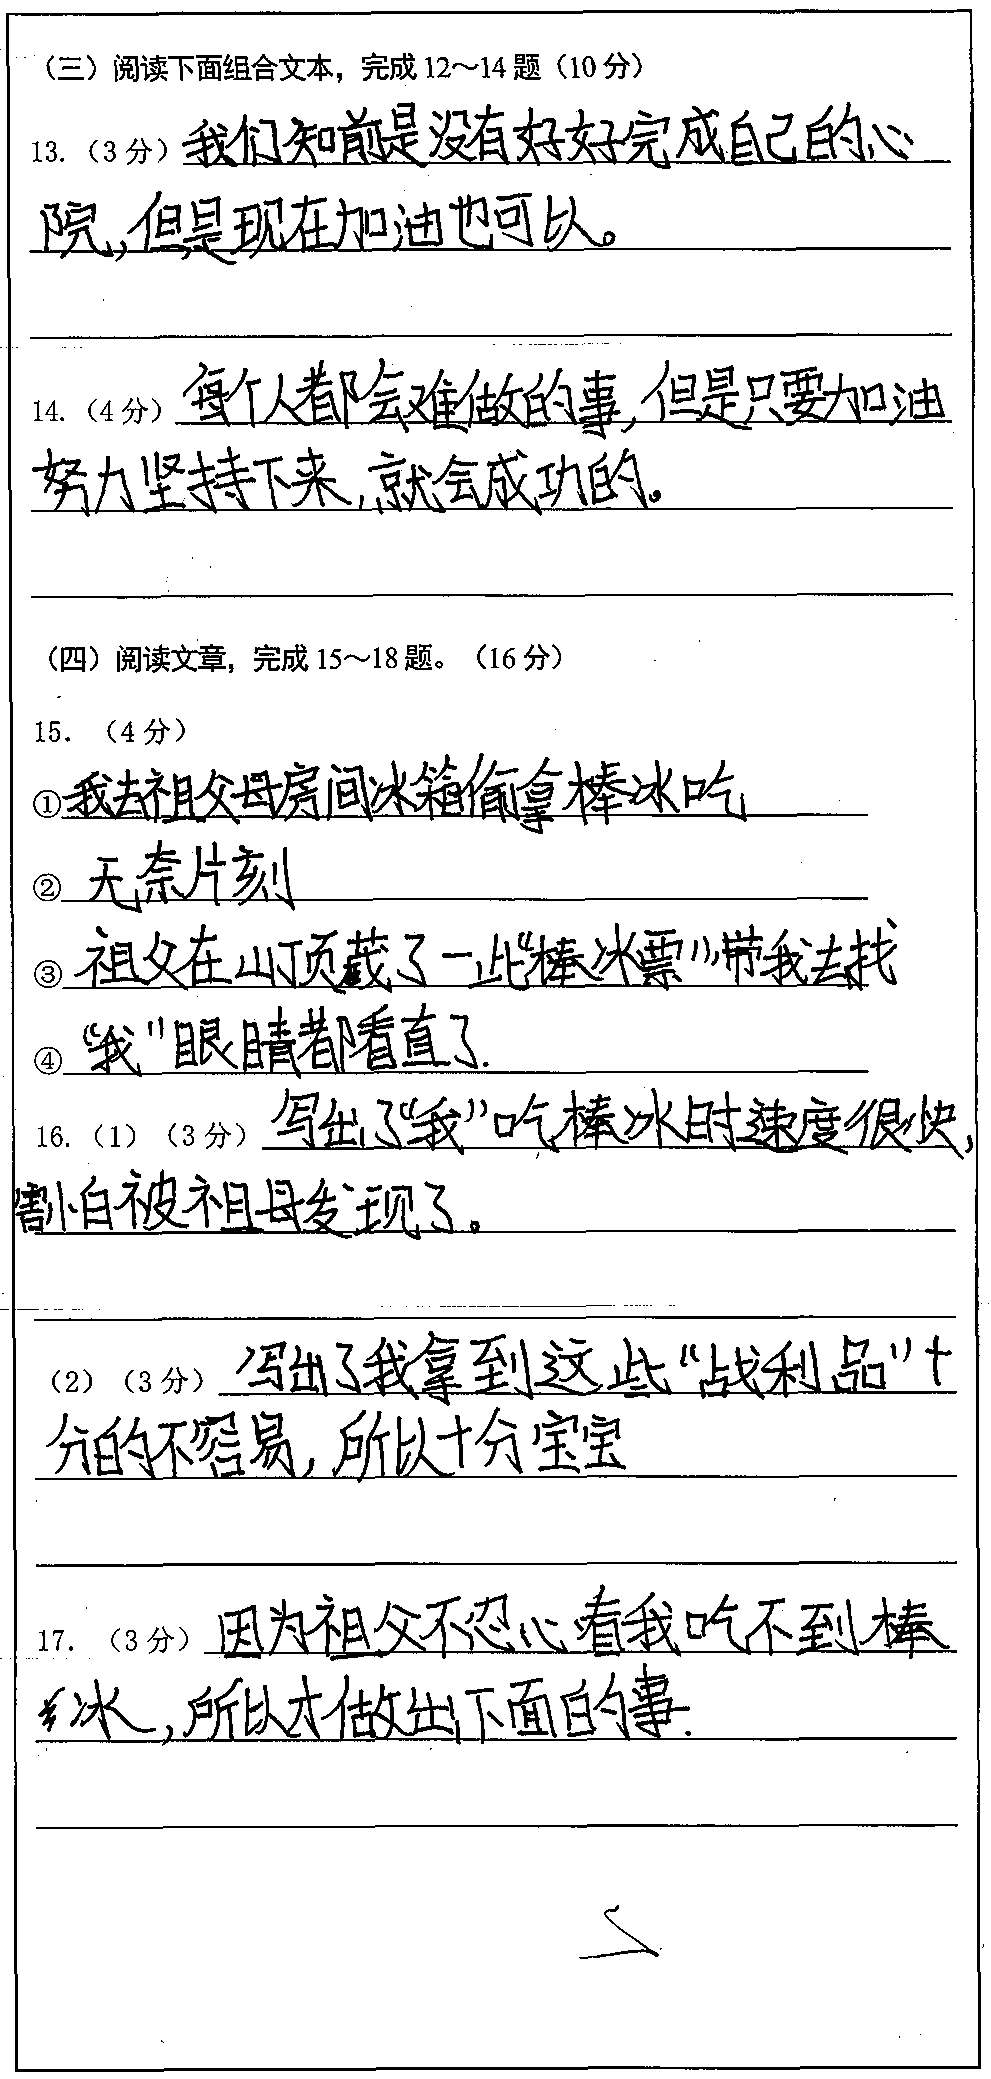 （三）阅读下面组合文本，完成12～14题（10分）
13.（3分）我们知前是没有好好完成自己的心
院，但是现在加油也可以。
14.（4分）每个人都会难做的事，但是只要加油
努力坚持下来，就会成功的。
（四）阅读文章，完成15～18题。（16分）
15. （4分）
①我去祖父母房间冰箱偷拿棒冰吃
②无奈片刻
③祖父在山顶藏了一些“棒冰票”，带我去找
④“我”眼睛都看直了.
16.（1）（3分）写出了“我”吃棒冰时速度很快，
害怕被祖母发现了。
（2）（3分）写出了我拿到这些“战利品”十
分的不容易，所以十分宝宝
17. （3分）因为祖父不忍心看我吃不到棒
冰，所以才做出下面的事.